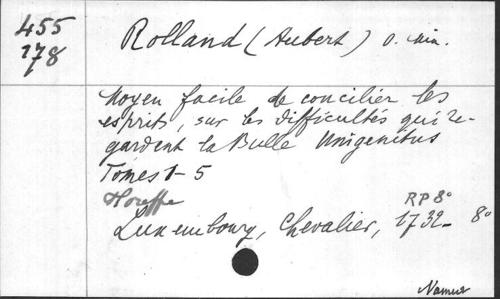 455
178
Rolland (Aubert) o. min.
Moyen facile de concilier les
esprits, sur les difficultés qui re-
gardent la Bulle Unigenitus
Tomes 1-5
Floreffe
RP 8°
Luxembourg, Chevalier, 1732- 8°
Namur